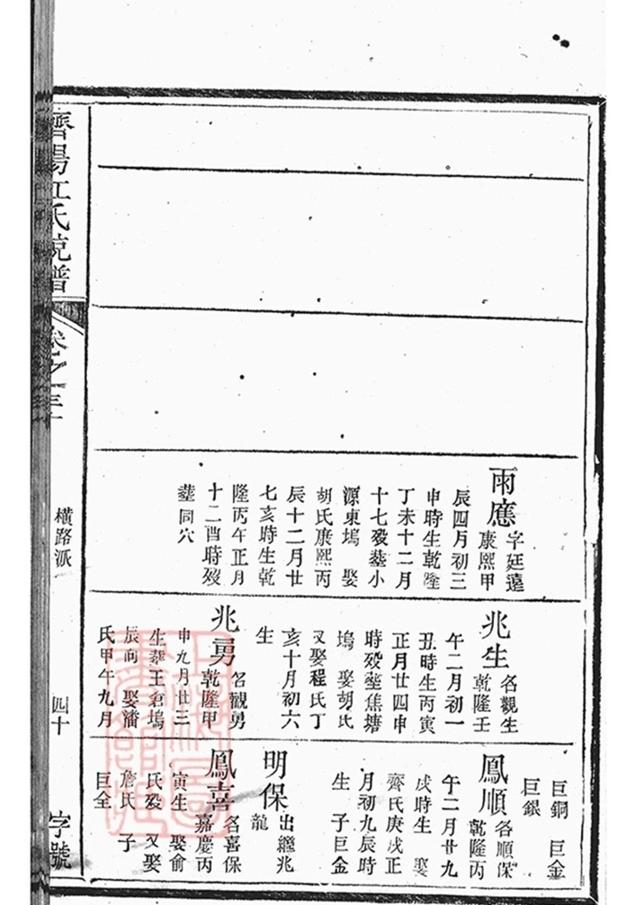 雨應
字廷遠
康熙甲
辰四月初三
申時生乾隆
丁未十二月
十七歿塟小
源東塢 娶
胡氏康熙丙
辰十二月廿
七亥時生乾
隆丙午正月
十二酉時歿
塟同穴
兆生
名觀生
乾隆壬
午二月初一
丑時生丙寅
正月廿四申
時歿塟焦塘
塢 娶胡氏
又娶程氏丁
亥十月初六
生
兆勇
名觀男
乾隆甲
申九月廿三
生塟王倉塢
辰向 娶潘
氏甲午九月
巨銅 巨金
巨銀
鳳順
名順保
乾隆丙
午二月廿九
戌時生 娶
齊氏庚戌正
月初九辰時
生 子巨金
明保
出繼兆
龍
鳳喜
名喜保
嘉慶丙
寅生 娶俞
氏歿 又娶
詹氏 子
巨全
濟陽江氏統譜
卷之三十
橫路派
四十
字號